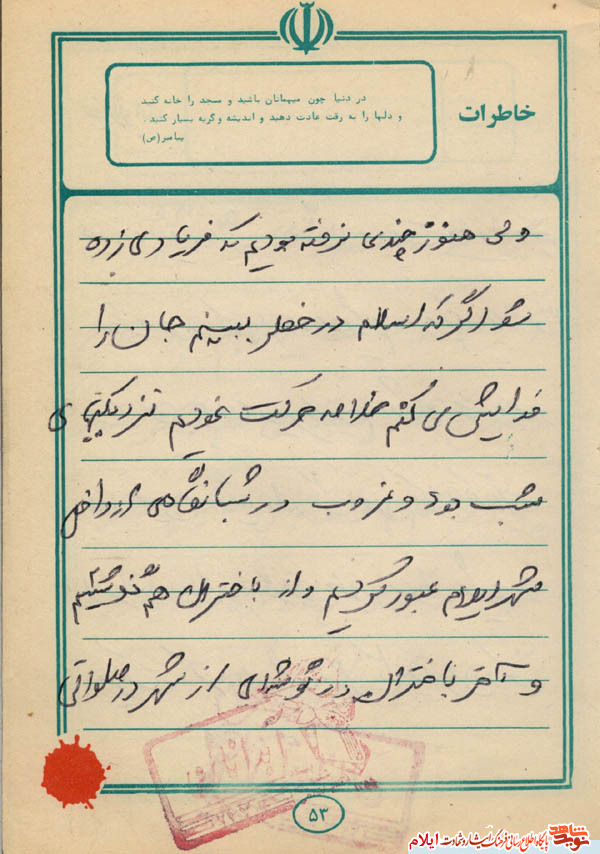 خاطرات
در دنیا چون میهمانان باشید و مسجد را خانه کنید
و دلها را به رقت عادت دهید و اندیشه و گریه بسیار کنید .
پیامبر(ص)
ولی هنوز چندی نرفته بودیم که فریاد می زده
شو اگر که اسلام در خطر ببینم جان را
فدایش می کنم خلاصه حرکت نمودیم نزدیکیهای
شب بود و غروب در شبانگاهی از داخل
شهر ایلام عبور کردیم و از باختران هم گذشتیم
و آخر باختران در گوشه‌ای از شهر در صلواتی
۵۳
نوید شاهد
پایگاه اطلاع رسانی فرهنگ ایثار و شهادت ایلام